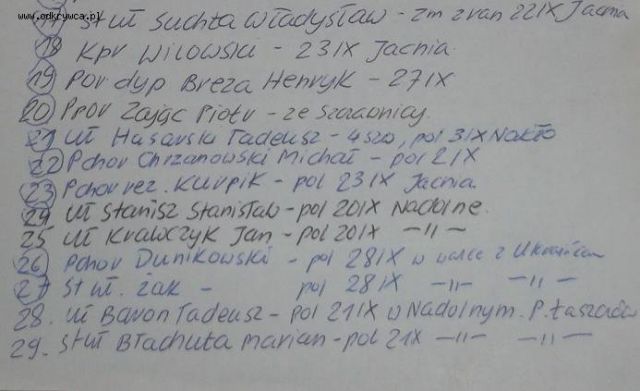 www.odkrywca.pl
17 St uł Suchta Władysław - zm z ran 22 IX Jacnia
18 Kpr Wilowski - 23 IX Jacnia.
19 Por dyp Breza Henryk - 27 IX
20 Ppor Zając Piotr - ze
21 uł Hasarski Tadeusz - 4 szw, pol 3 IX Nakło
22 Pchor Chrzanowski Michał - pol 2 IX
23 Pchor rez. Kurpik - pol 23 IX Jacnia.
24 uł Stanisz Stanisław - pol 20 IX Nadolne.
25 uł Krawczyk Jan - pol 20 IX -"-
26 Pchor Dunikowski - pol 28 IX w walce z Ukraińcam
27 St uł. Żak - pol 28 IX -"- -"-
28. uł Baron Tadeusz - pol 21 IX w Nadolnym. P. Łaszczów
29. St uł Błachuta Marian - pol 21 X -"- -"-